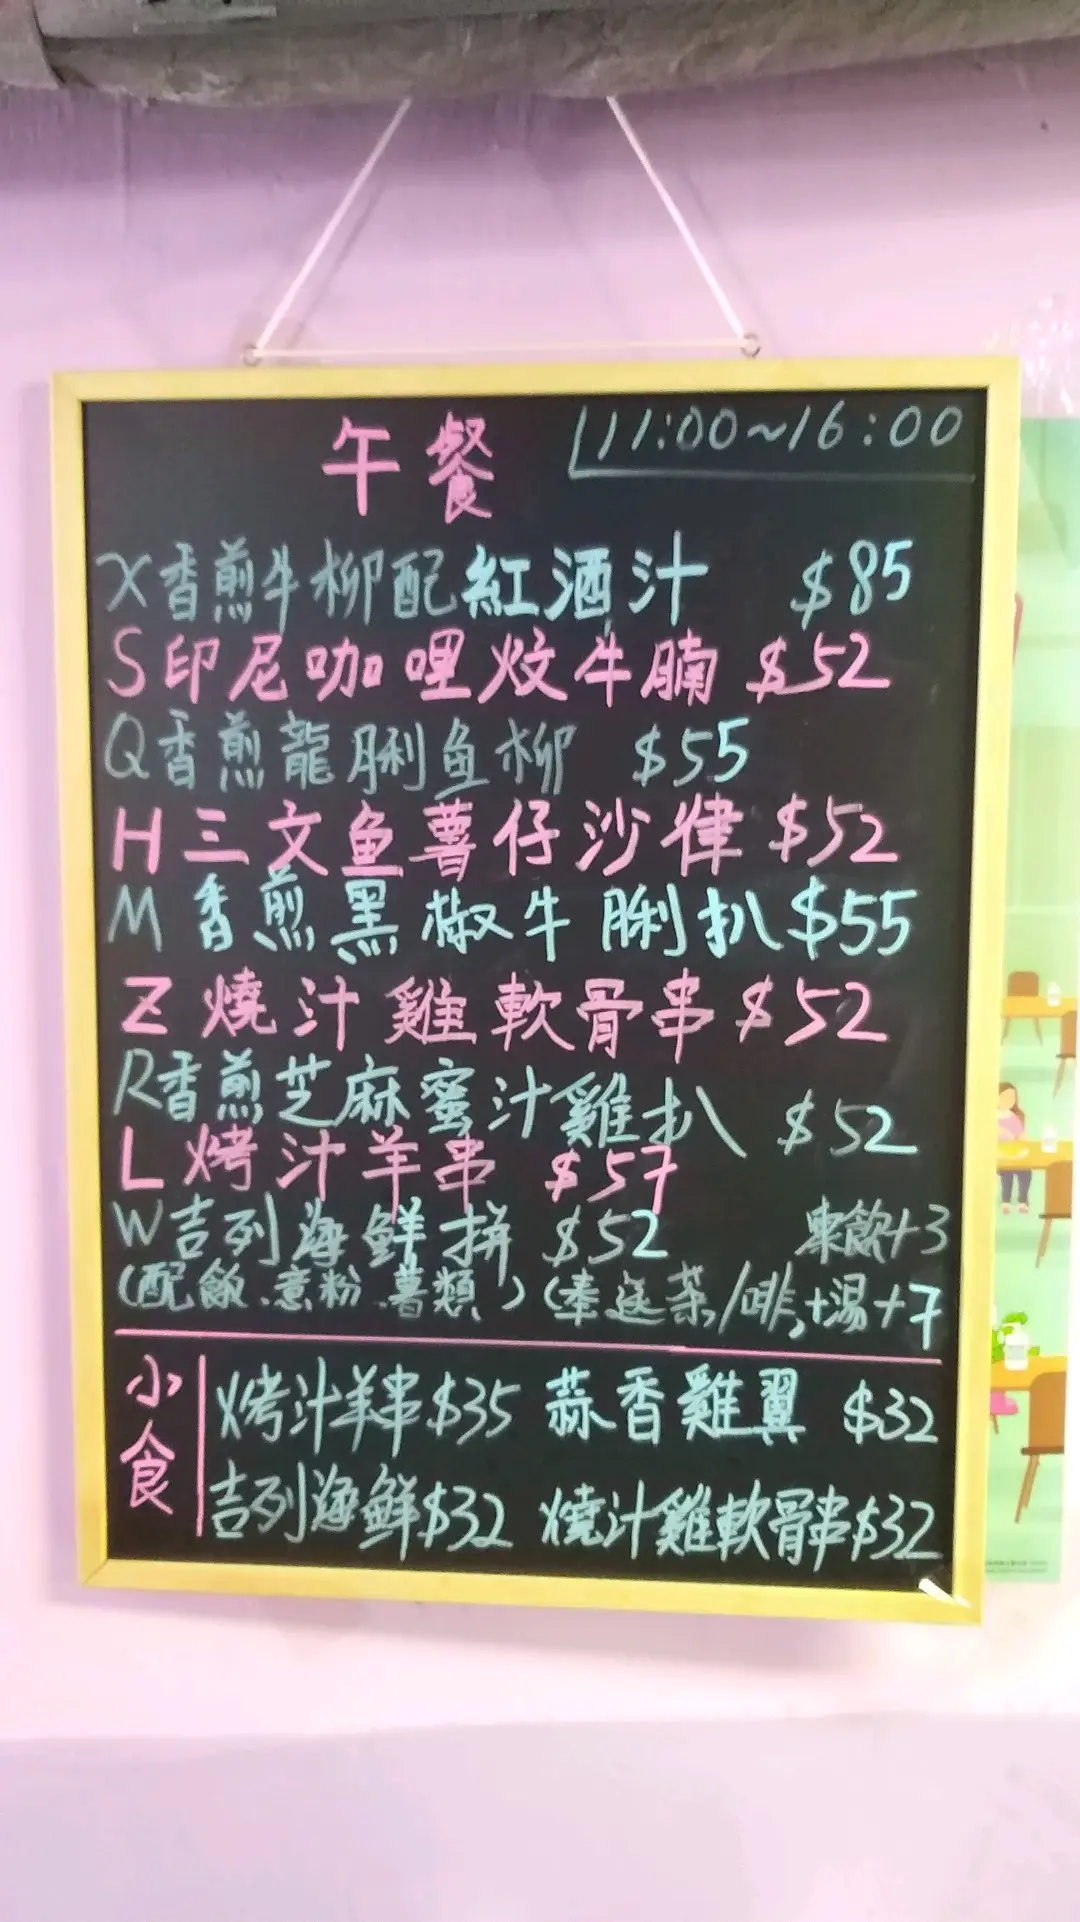 午餐 11:00~16:00
X香煎牛柳配紅酒汁 $85
S印尼咖哩炆牛腩 $52
Q香煎龍脷鱼柳 $55
H三文鱼薯仔沙律 $52
M香煎黑椒牛脷扒 $55
Z燒汁雞軟骨串 $52
R香煎芝麻蜜汁雞扒 $52
L烤汁羊串 $57
W吉列海鮮拼 $52 凍飲+3
(配飯、意粉、薯類) (奉送茶/啡,+湯+7
小食
烤汁羊串$35 蒜香雞翼 $32
吉列海鮮$32 燒汁雞軟骨串$32